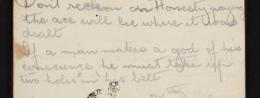 Don't reckon on Honesty paying
the ace will lie where it was
dealt
If a man makes a god of his
conscience he must take up
two holes in his belt